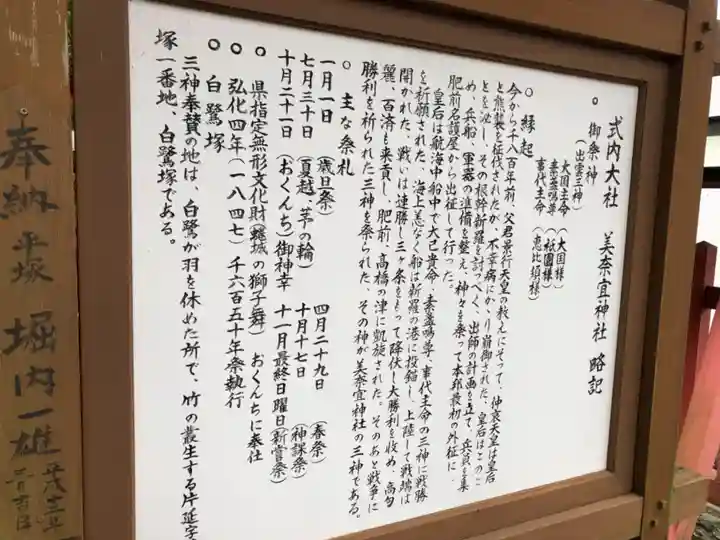 式内大社　美奈宜神社　略記
○ 御祭神
（出雲三神）
大国主命（大国様）
素盞鳴尊（祇園様）
事代主命（恵比須様）
○ 縁起
今から千八百年前、父君景行天皇の教えにそって、仲哀天皇は皇后
と熊襲を征伐されたが、不幸病にかゝり崩御された。皇后はこのこ
とを泌し、その根幹新羅を討つべく、出師の計画を立て、兵員を集
め、兵船、軍器の準備を整え、神々を奉って本邦最初の外征に、
肥前名護屋から出征して行った。
皇后は航海中船中で大己貴命・素盞鳴尊・事代主命の三神に戦勝
を祈願された。海上恙なく船は新羅の港に投錨し、上陸して戦端は
開かれた。戦いは連勝し三ヶ条をもって降伏し大勝利を收め、高勾
麗、百済も来貢し、肥前、高橋の津に凱旋された。そのあと戦争に
勝利を祈られた三神を祭られた。その神が美奈宜神社の三神である。
○ 主な祭礼
一月一日（歳旦祭）　四月二十九日（春祭）
七月三十日（夏越、茅の輪）　十月十七日（神誕祭）
十月二十一日（おくんち）御神幸　十一月最終日曜日（新嘗祭）
○ 県指定無形文化財（蜷城の獅子舞）　おくんちに奉仕
○ 弘化四年（一八四七）千六百五十年祭執行
○ 白鷺塚
三神奉賛の地は、白鷺が羽を休めた所で、竹の叢生する片延字
塚一番地、白鷺塚である。
奉納 平塚 堀内一雄